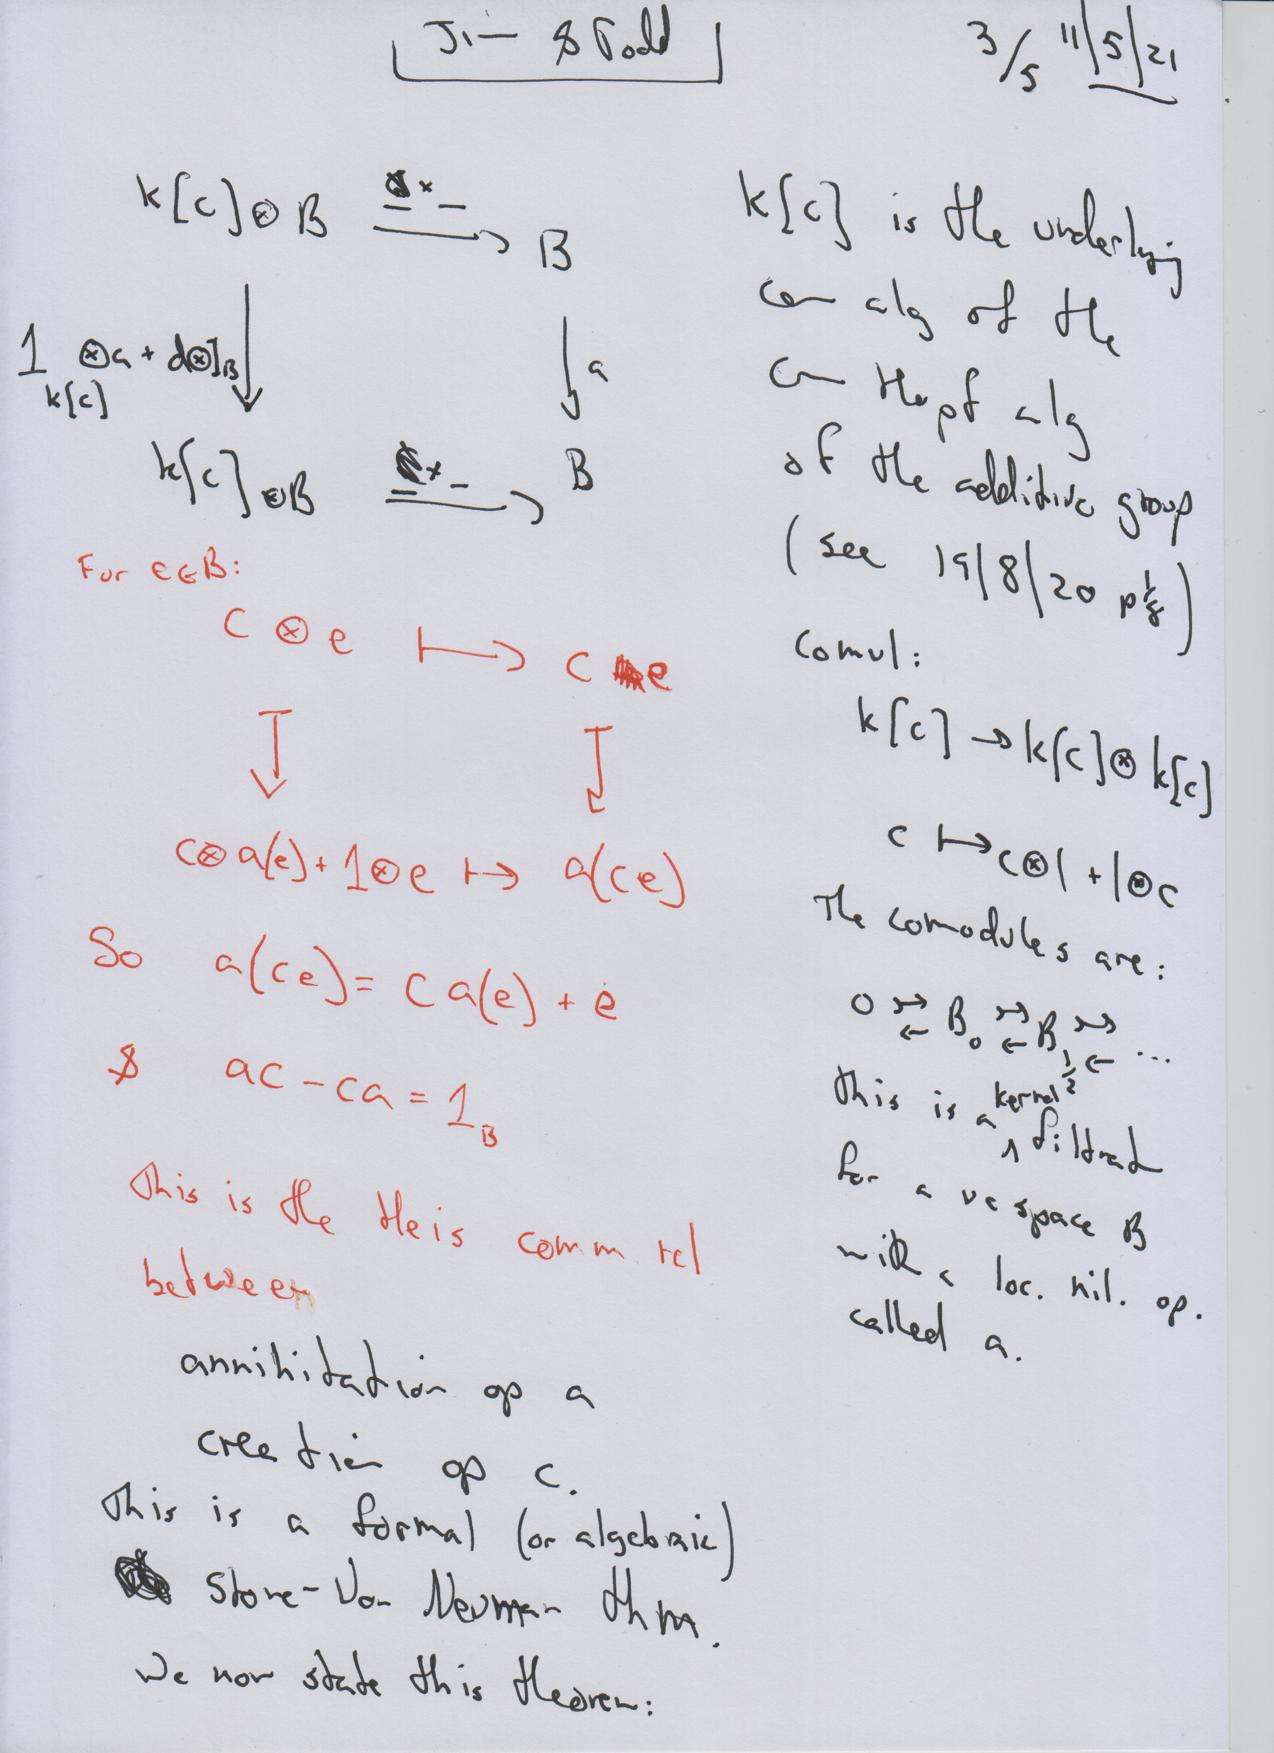 Jim & Todd
3/5 11/5/21
k[c]⊗B _×_ → B
1_k[c] ⊗a + d⊗1_B
a
k[c]⊗B _×_ → B
For e∈B:
c ⊗ e ↦ c e
c⊗a(e) + 1⊗e ↦ a(ce)
So a(ce) = c a(e) + e
& ac - ca = 1_B
This is the Heis comm. rel
between
annihilation op a
creation op c.
This is a formal (or algebraic)
Stone-Von Neuman thm.
We now state this theorem:
k[c] is the underlying
com alg of the
com Hopf alg
of the additive group
(see 19/8/20 p 1/8)
Comul:
k[c] → k[c]⊗k[c]
c ↦ c⊗1 + 1⊗c
The comodules are:
0 ⇄ B₀ ⇄ B₁ ⇄ ...
This is a kernel filtrat
for a vc space B
with a loc. nil. op.
called a.